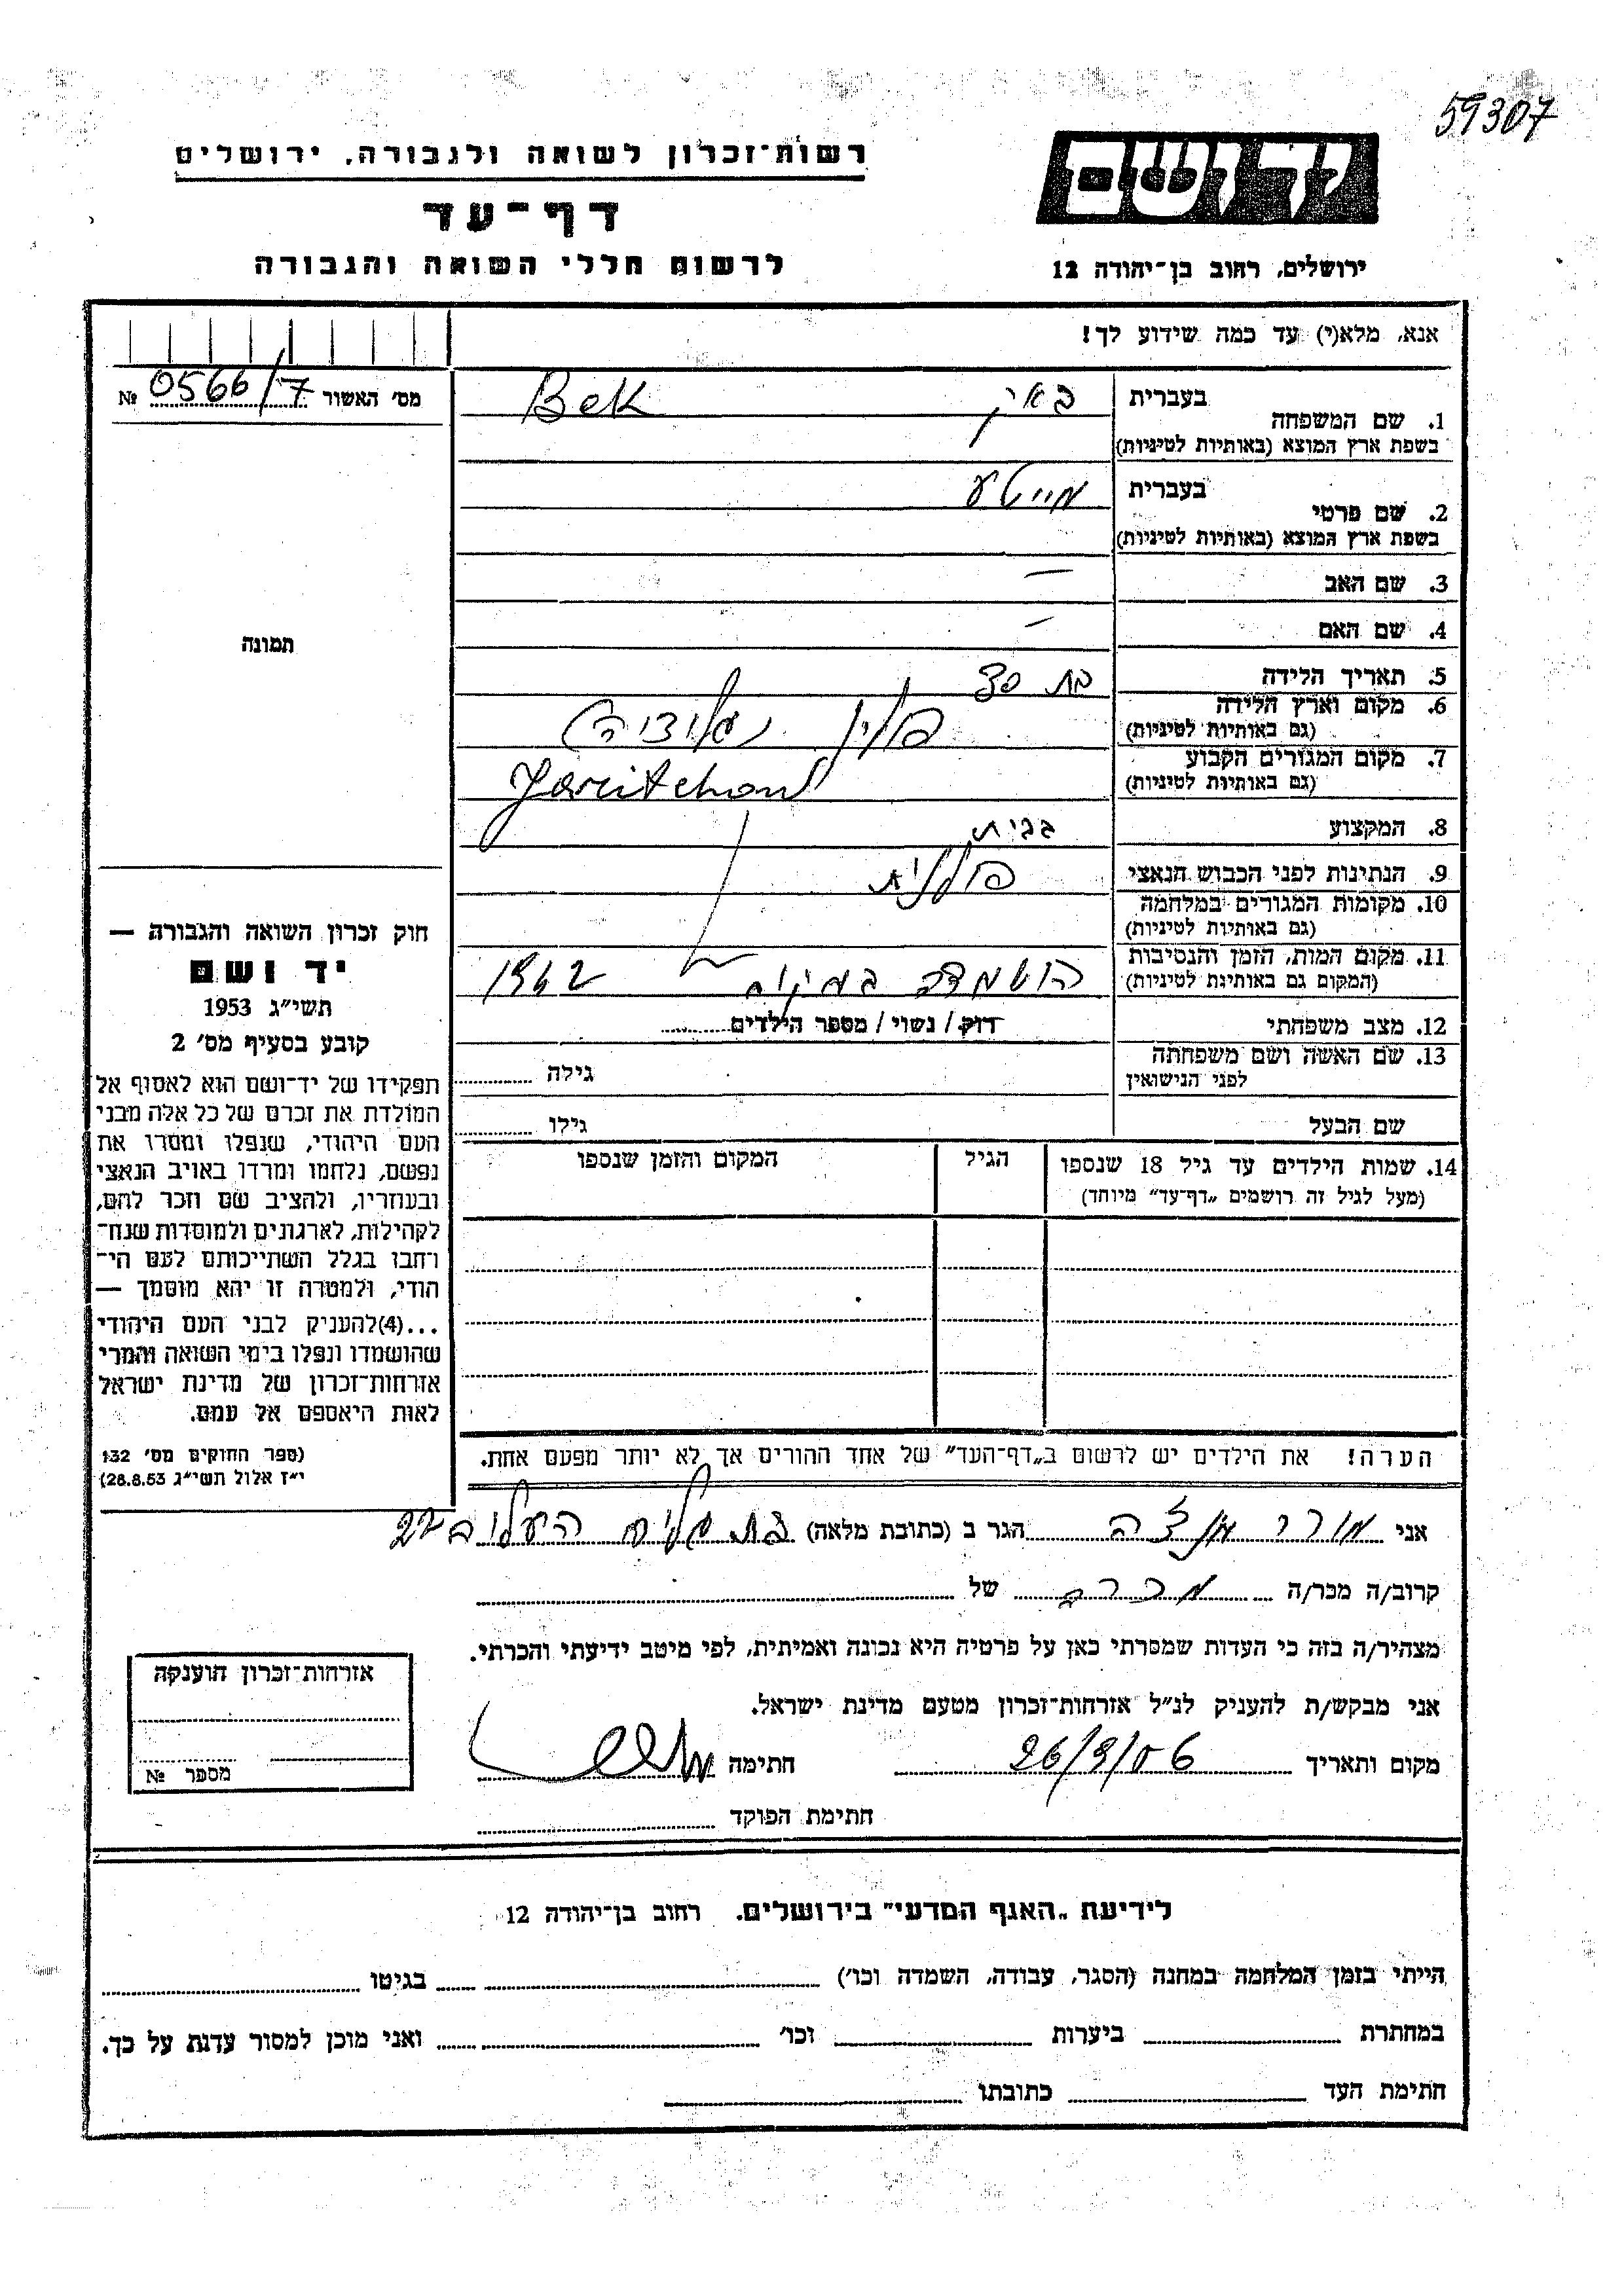 59307
יד ושם
רשות־זכרון לשואה ולגבורה, ירושלים
דף־עד
ירושלים, רחוב בן־יהודה 12
לרשום חללי השואה והגבורה
אנא, מלא(י) עד כמה שידוע לך!
מס׳ האשור 0566/7 №
1. שם המשפחה
בעברית באק Bek
בשפת ארץ המוצא (באותיות לטיניות)
2. שם פרטי
בעברית מייטע
בשפת ארץ המוצא (באותיות לטיניות)
3. שם האב —
4. שם האם —
5. תאריך הלידה בת 30
6. מקום וארץ הלידה פולין (גליציה)
(גם באותיות לטיניות)
7. מקום המגורים הקבוע
(גם באותיות לטיניות)
8. המקצוע
9. הנתינות לפני הכבוש הנאצי פולנית
10. מקומות המגורים במלחמה
(גם באותיות לטיניות)
11. מקום המות, הזמן והנסיבות הושמדה במקום 1942
(המקום גם באותיות לטיניות)
12. מצב משפחתי רווק / נשוי / מספר הילדים
13. שם האשה ושם משפחתה
לפני הנישואין גילה
שם הבעל גילו
14. שמות הילדים עד גיל 18 שנספו הגיל המקום והזמן שנספו
(מעל לגיל זה רושמים „דף־עד” מיוחד)
הערה! את הילדים יש לרשום ב„דף־העד” של אחד ההורים אך לא יותר מפעם אחת.
תמונה
חוק זכרון השואה והגבורה —
יד ושם
תשי״ג 1953
קובע בסעיף מס׳ 2
תפקידו של יד־ושם הוא לאסוף אל
המולדת את זכרם של כל אלה מבני
העם היהודי, שנפלו ומסרו את
נפשם, נלחמו ומרדו באויב הנאצי
ובעוזריו, ולהציב שם וזכר להם,
לקהילות, לארגונים ולמוסדות שנח־
רבו בגלל השתייכותם לעם הי־
הודי, ולמטרה זו יהא מוסמך —
...(4)להעניק לבני העם היהודי
שהושמדו ונפלו בימי השואה והמרי
אזרחות־זכרון של מדינת ישראל
לאות היאספם אל עמם.
(ספר החוקים מס׳ 132
י״ז אלול תשי״ג 28.8.53)
אני הגר ב (כתובת מלאה) 22
קרוב/ה מכר/ה של
מצהיר/ה בזה כי העדות שמסרתי כאן על פרטיה היא נכונה ואמיתית, לפי מיטב ידיעתי והכרתי.
אני מבקש/ת להעניק לנ״ל אזרחות־זכרון מטעם מדינת ישראל.
מקום ותאריך חתימה
חתימת הפוקד
אזרחות־זכרון הוענקה
מספר №
לידיעת „האגף המדעי” בירושלים, רחוב בן־יהודה 12
הייתי בזמן המלחמה במחנה (הסגר, עבודה, השמדה וכו׳) בגיטו
במחתרת ביערות וכו׳ ואני מוכן למסור עדות על כך.
חתימת העד כתובתו